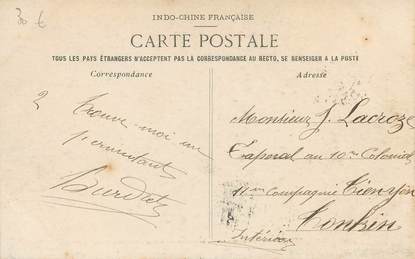 30 €
INDO-CHINE FRANÇAISE
CARTE POSTALE
TOUS LES PAYS ÉTRANGERS N'ACCEPTENT PAS LA CORRESPONDANCE AU RECTO, SE RENSEIGER A LA POSTE
Correspondance
Adresse
2 Trouve-moi un
Monsieur J. Lacroze
Caporal au 10me Colonial
10me Compagnie Tien-Yen
Tonkin
Intérieur